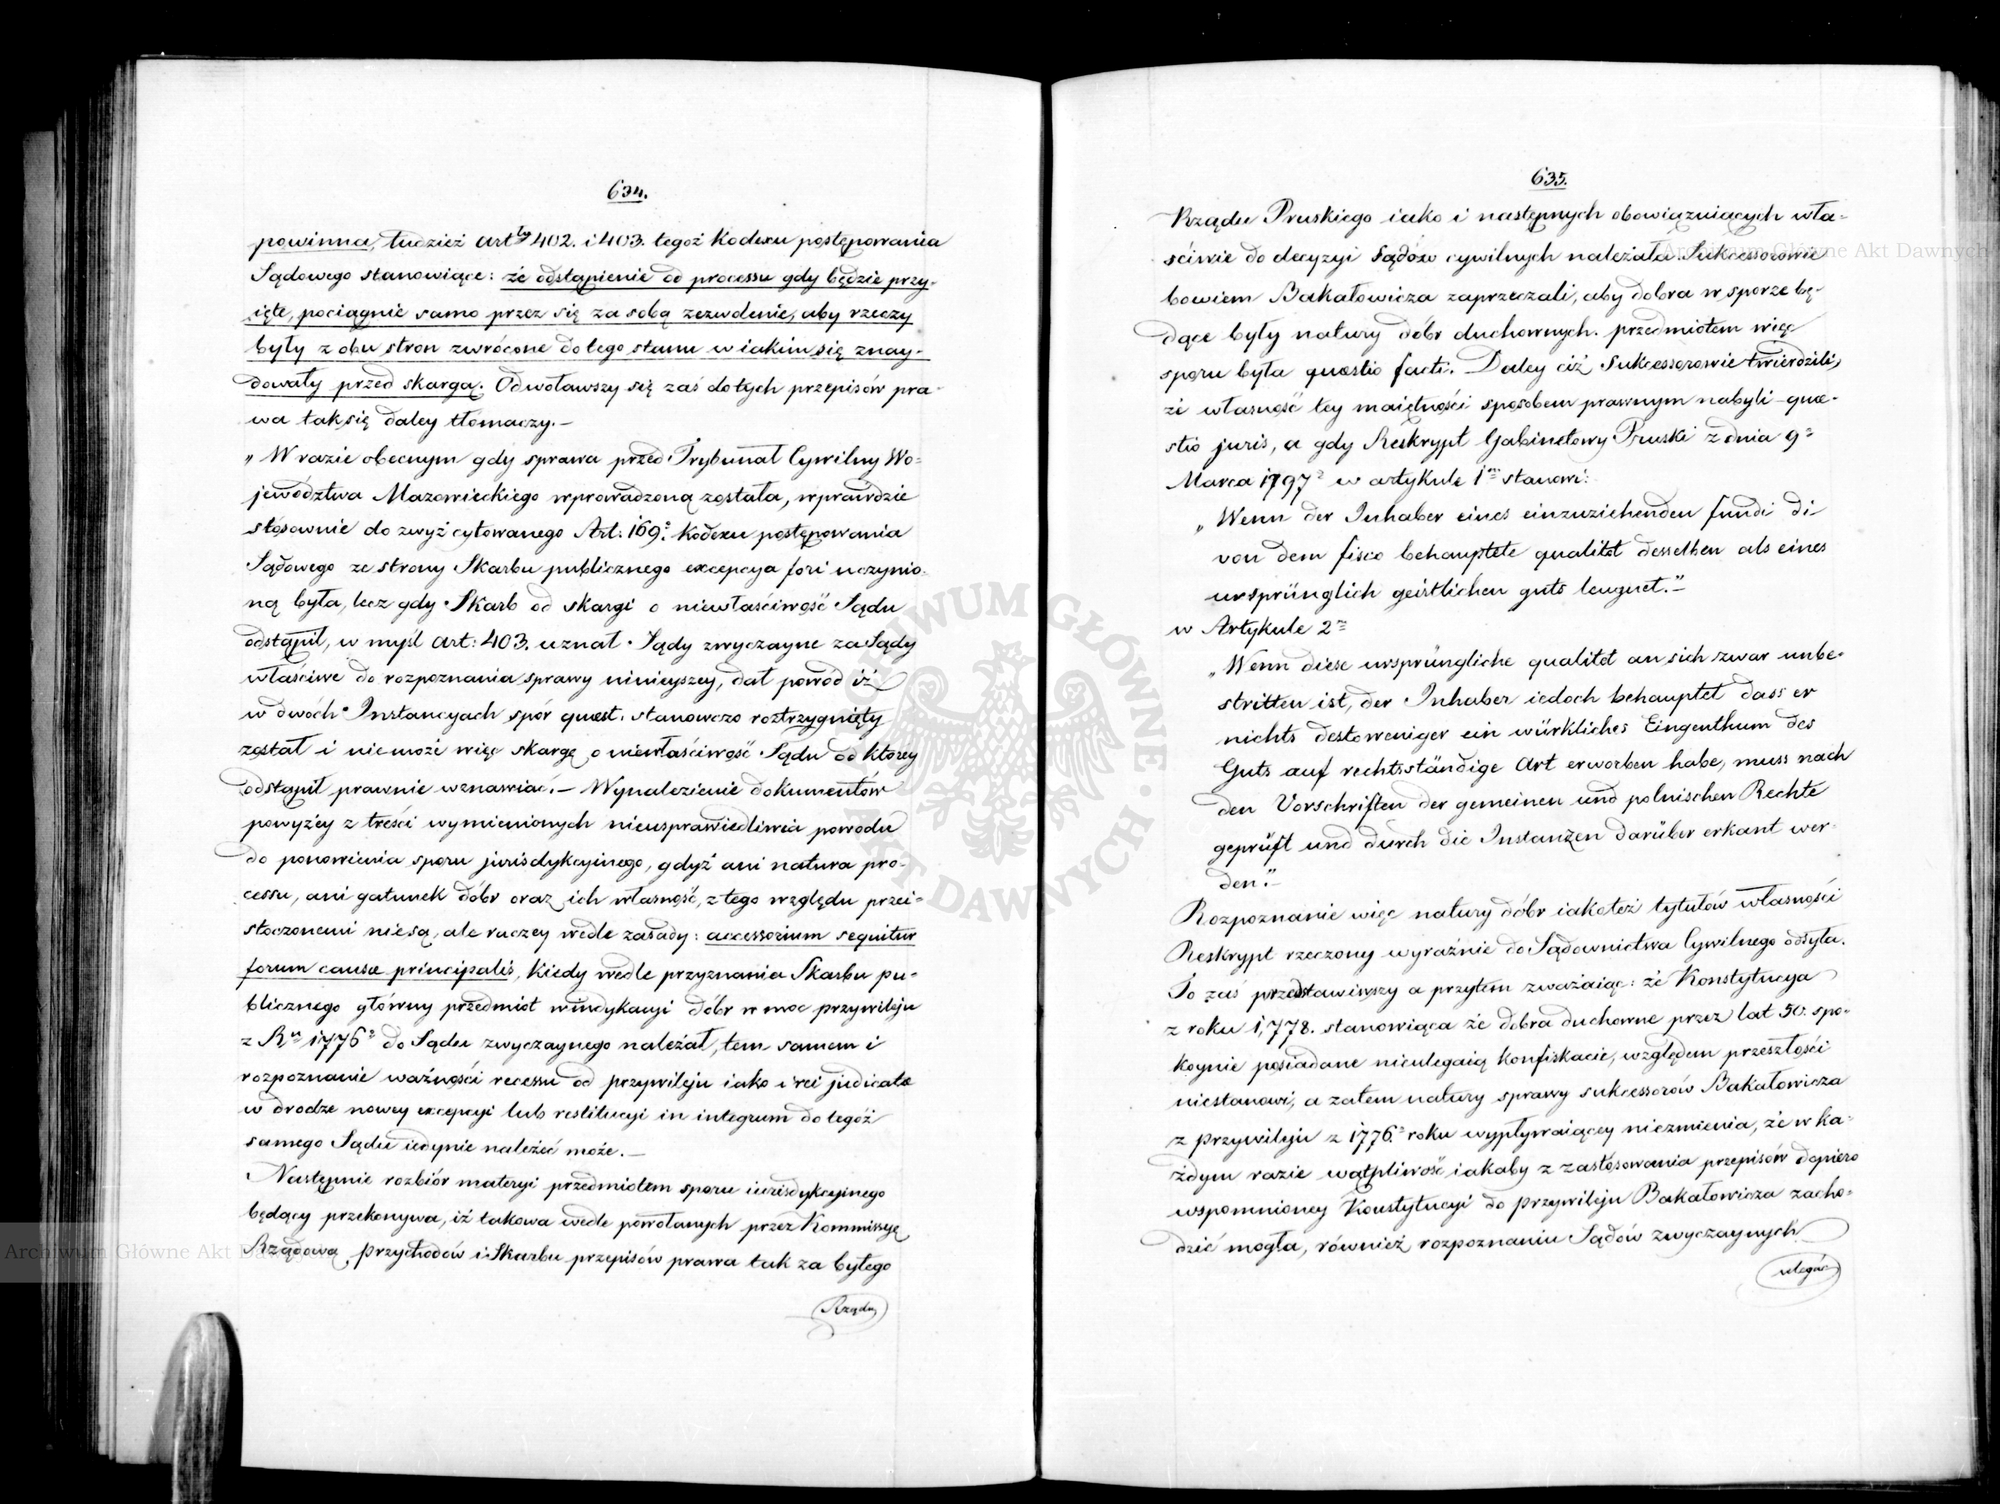 634.
powinna, tudzież artły 402. i 403. tegoż Kodexu postępowania
Sądowego stanowiące: że odstąpienie od processu gdy będzie przy-
ięte, pociągnie samo przez się za sobą zezwolenie, aby rzeczy
były z obu stron zwrócone do tego stanu w iakim się znay-
dowały przed skargą. Odwoławszy się zaś do tych przepisów pra-
wa tak się daley tłomaczy.—
„W razie obecnym gdy sprawa przed Trybunał Cywilny Wo-
jewództwa Mazowieckiego wprowadzoną została, wprawdzie
stósownie do zwyż cytowanego Art: 169° Kodexu postępowania
Sądowego ze strony Skarbu publicznego excepcya fori uczynio-
ną była, lecz gdy Skarb od skargi o niewłaściwość Sądu
odstąpił, w myśl art: 403. uznał Sądy zwyczayne za Sądy
właściwe do rozpoznania sprawy ninieyszey, dał powód iż
w dwóch Instancyach spór quest. stanowczo roztrzygnięty
został i nie może więc skargę o niewłaściwość Sądu od ktorey
odstąpił prawnie wznawiać.— Wynalezienie dokumentów
powyżey z treści wymienionych nieusprawiedliwia powodu
do ponowienia sporu jurisdykcyinego, gdyż ani natura pro-
cessu, ani gatunek dóbr oraz ich własność, z tego względu przei-
stoczonemi niesą, ale raczey wedle zasady: accessorium sequitur
forum causæ principalis, kiedy wedle przyznania Skarbu pu-
blicznego główny przedmiot windykacyi dóbr w moc przywileju
z Ru 1776° do Sądu zwyczaynego należał, tem samem i
rozpoznanie ważności recessu od przywileju iako i rei judicatæ
w drodze nowey excepcyi lub restitucyi in integrum do tegóż
samego Sądu iedynie należeć może.—
Następnie rozbiór materyi przedmiotem sporu iurisdykcyinego
będący przekonywa, iż takowa wedle powołanych przez Kommissyę
Rządową Przychodów i Skarbu przepisów prawa tak za byłego
Rządu
635.
Rządu Pruskiego iako i następnych obowiązuiących wła-
ściwie do decyzyi Sądów cywilnych należała. Sukcessorowie
bowiem Bakałowicza zaprzeczali, aby dobra w sporze bę-
dące były natury dóbr duchownych. przedmiotem więc
sporu była quæstio facti. Daley ciż Sukcessorowie twierdzili,
że własność tey maiętności sposobem prawnym nabyli quæ-
stio juris, a gdy Reskrypt Gabinetowy Pruski z dnia 9°
Marca 1797° w artykule 1m stanowi:
„Wenn der Inhaber eines einzuziehenden fundi di
von dem fisco behauptete qualitet desselben als eines
ursprünglich geistlichen guts leugnet."—
w Artykule 2m
„Wenn diese ursprüngliche qualitet an sich zwar unbe-
stritten ist, der Inhaber iedoch behauptet dass er
nichts destoweniger ein würkliches Eingenthum des
Guts auf rechtsständige Art erworben habe, muss nach
den Vorschriften der gemeinen und polnischen Rechte
geprüft und durch die Instanzen darüber erkant wer-
den."—
Rozpoznanie więc natury dóbr iakoteż tytułów własności
Reskrypt rzeczony wyraźnie do Sądownictwa Cywilnego odsyła.
To zaś przedstawiwszy a przytem zważaiąc: że Konstytucya
z roku 1,778. stanowiąca że dobra duchowne przez lat 50. spo-
koynie posiadane nieulegaią konfiskacie, względem przeszłości
niestanowi, a zatem natury sprawy sukcessorów Bakałowicza
z przywileju z 1776° roku wypływaiącey niezmienia, że w ka-
żdym razie wątpliwość iakaby z zastósowania przepisów dopiero
wspomnioney Konstytucyi do przywileju Bakałowicza zacho-
dzić mogła, również rozpoznaniu Sądów zwyczaynych
ulegać
Archiwum Główne Akt Dawnych
Archiwum Główne Akt Dawnych
ARCHIWUM GŁÓWNE · AKT DAWNYCH ·